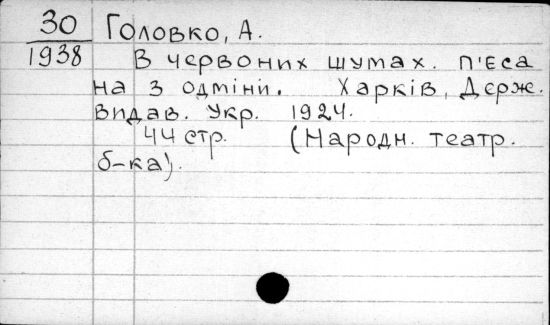 30 Головко, А.
1938 В червоних шумах. П'єса
на 3 одміни. Харків, Держ.
Видав. Укр. 1924.
44 стр. (Народн. театр.
б-ка).